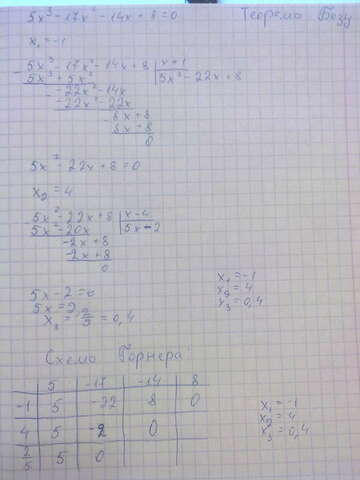 5x³-17x²-14x+8=0 Теорема Безу
x₁=-1
5x³-17x²-14x+8 | x+1
5x³+5x² | 5x²-22x+8
-22x²-14x
-22x²-22x
8x+8
8x+8
0
5x²-22x+8=0
x₂=4
5x²-22x+8 | x-4
5x²-20x | 5x-2
-2x+8
-2x+8
0
5x-2=0
5x=2
x₃=2/5=0,4
x₁=-1
x₂=4
x₃=0,4
Схема Горнера
5 -17 -14 8
-1 5 -22 8 0
4 5 -2 0
2/5 5 0
x₁=-1
x₂=4
x₃=0,4